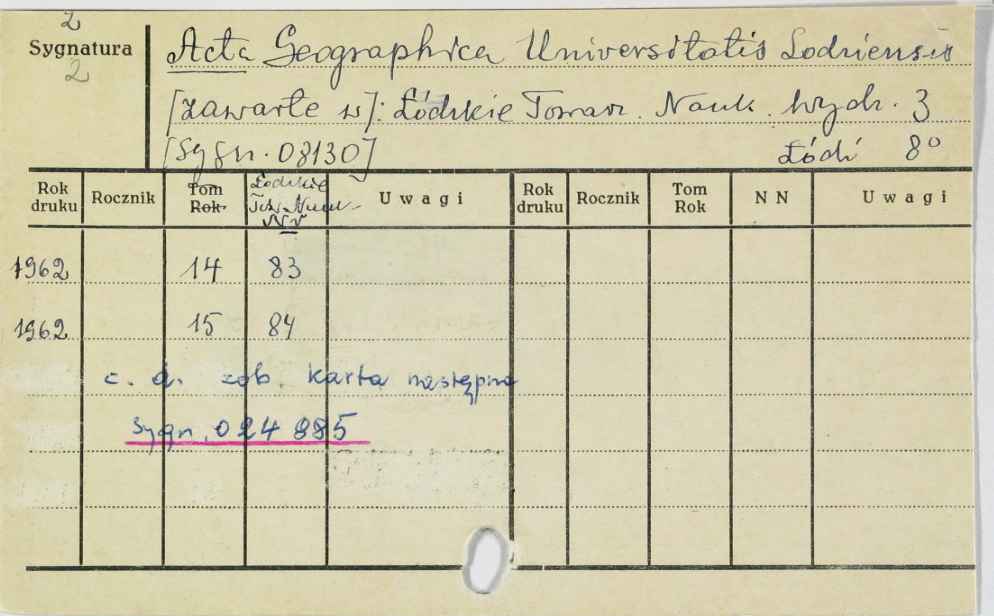 2
Sygnatura
2
Acta Geographica Universitatis Lodziensis
[zawarte w]: Łódzkie Towarz. Nauk. Wydz. 3
[Sygn. 08130]
Łódź 8°
Rok druku Rocznik Tom Rok Łódzkie Tow. Nauk. Nr Uwagi Rok druku Rocznik Tom Rok NN Uwagi
1962 14 83
1962 15 84
c. d. zob. karta następna
Sygn. 024 885